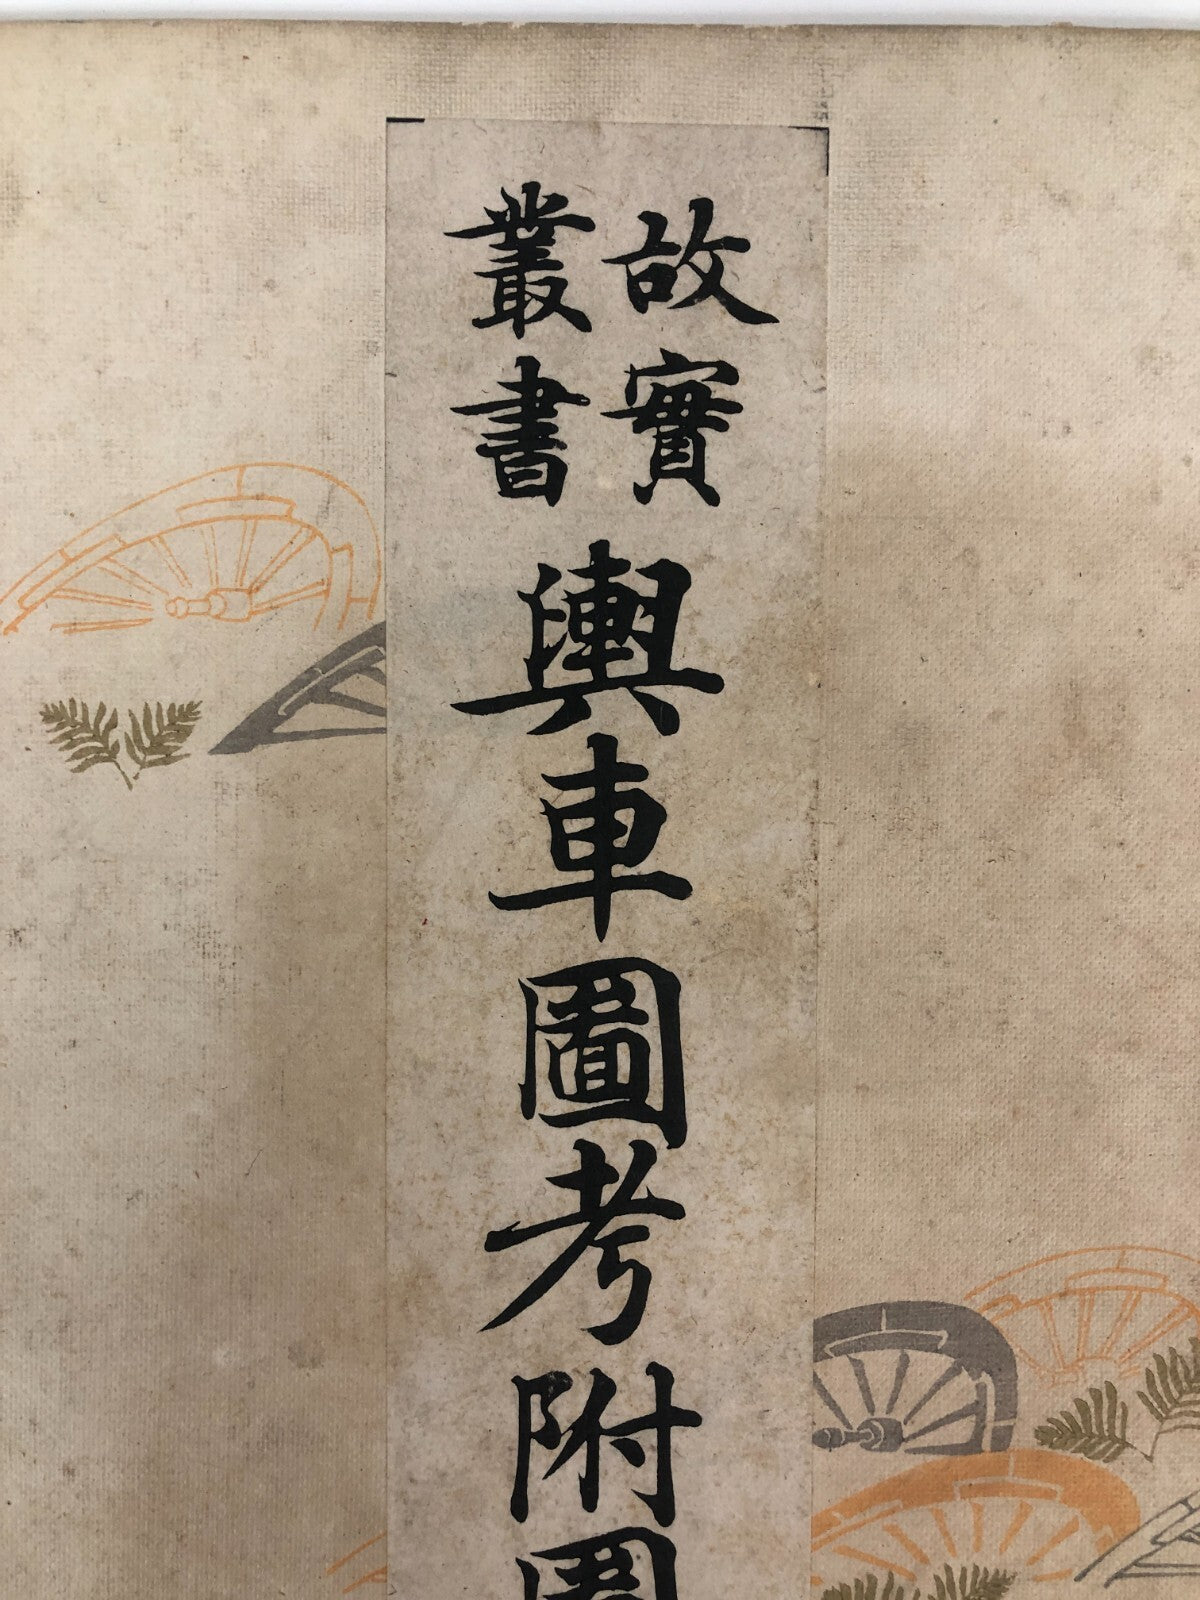 故實
叢書
輿車圖考附圖